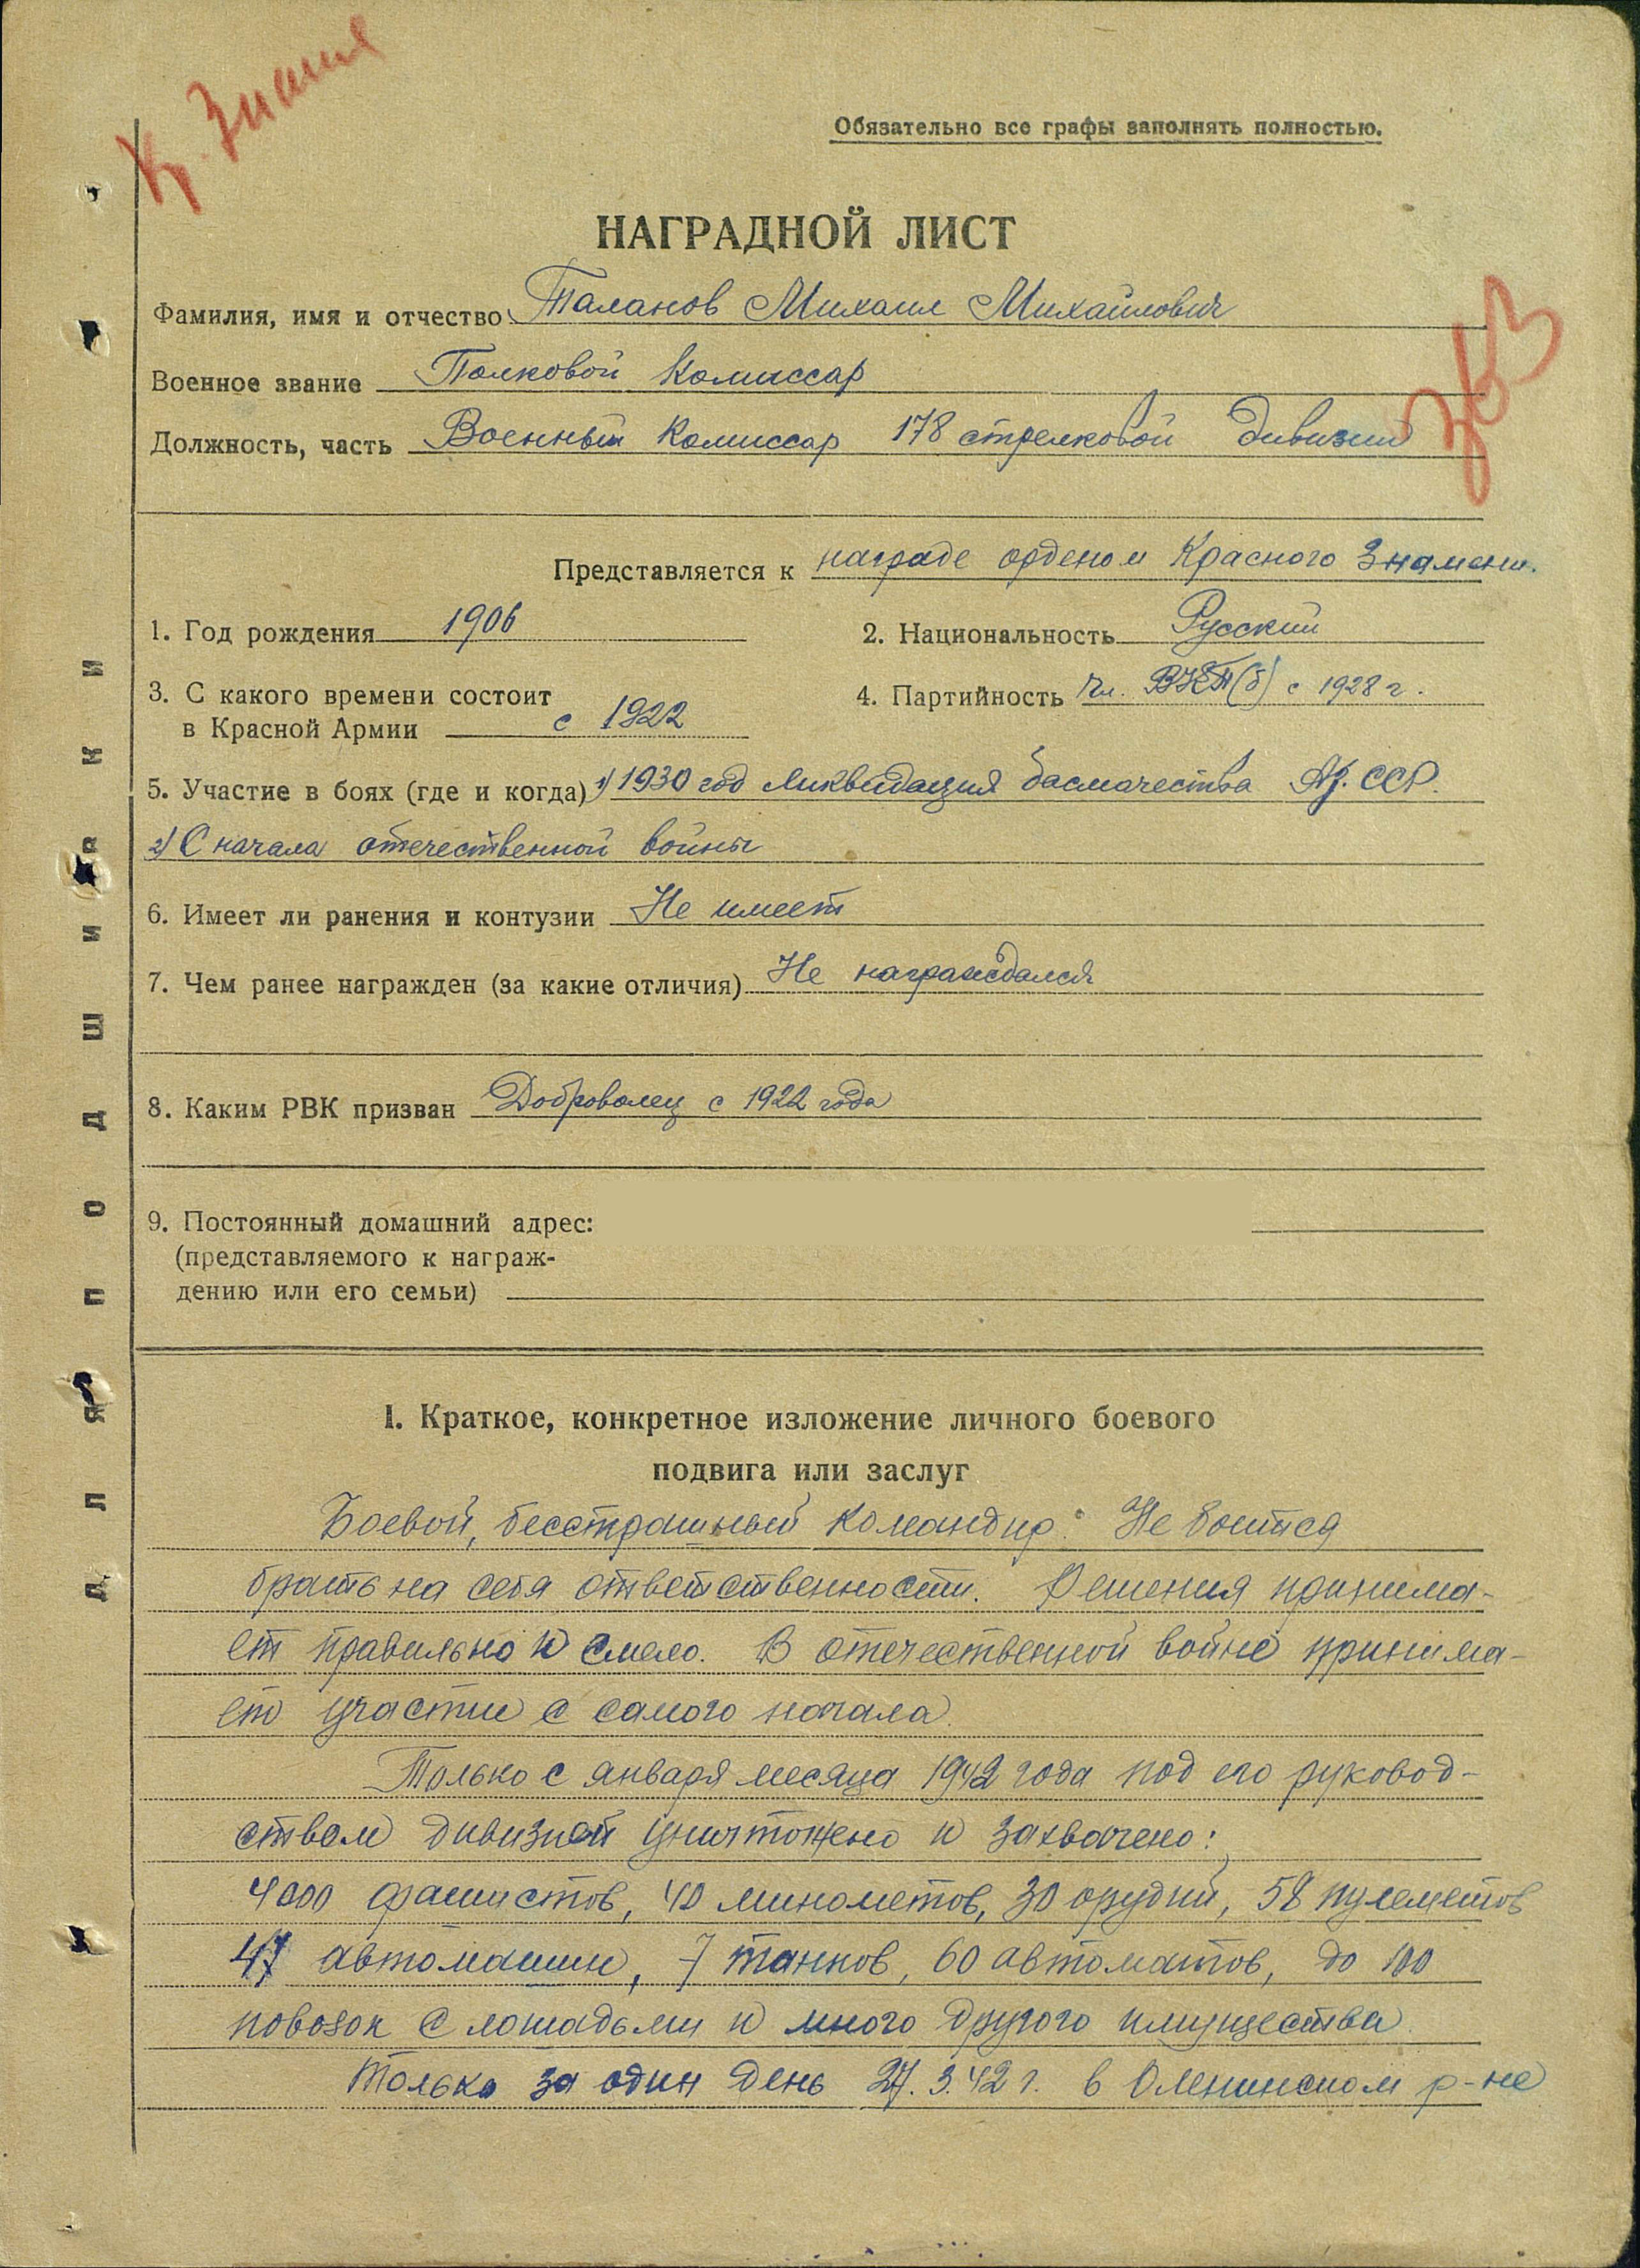 Кр. Знамя
Обязательно все графы заполнять полностью.
НАГРАДНОЙ ЛИСТ
Фамилия, имя и отчество Таланов Михаил Михайлович
Военное звание Полковой Комиссар
Должность, часть Военный Комиссар 178 стрелковой дивизии
Представляется к награде орденом Красного Знамени.
1. Год рождения 1906
2. Национальность Русский
3. С какого времени состоит
в Красной Армии с 1922
4. Партийность Чл. ВКП(б) с 1928 г.
5. Участие в боях (где и когда) 1) 1930 год ликвидация басмачества Аз. ССР.
2) С начала отечественной войны
6. Имеет ли ранения и контузии Не имеет
7. Чем ранее награжден (за какие отличия) Не награждался
8. Каким РВК призван Доброволец с 1922 года
9. Постоянный домашний адрес:
(представляемого к награж-
дению или его семьи)
I. Краткое, конкретное изложение личного боевого
подвига или заслуг
Боевой, бесстрашный командир. Не боится
брать на себя ответственности. Решения принима-
ет правильно и смело. В отечественной войне принима-
ет участие с самого начала.
Только с января месяца 1942 года под его руковод-
ством дивизией уничтожено и захвачено:
4000 фашистов, 40 минометов, 30 орудий, 58 пулеметов
47 автомашин, 7 танков, 60 автоматов, до 100
повозок с лошадьми и много другого имущества.
Только за один день 27.3.42 г. в Оленинском р-не
Для подшивки